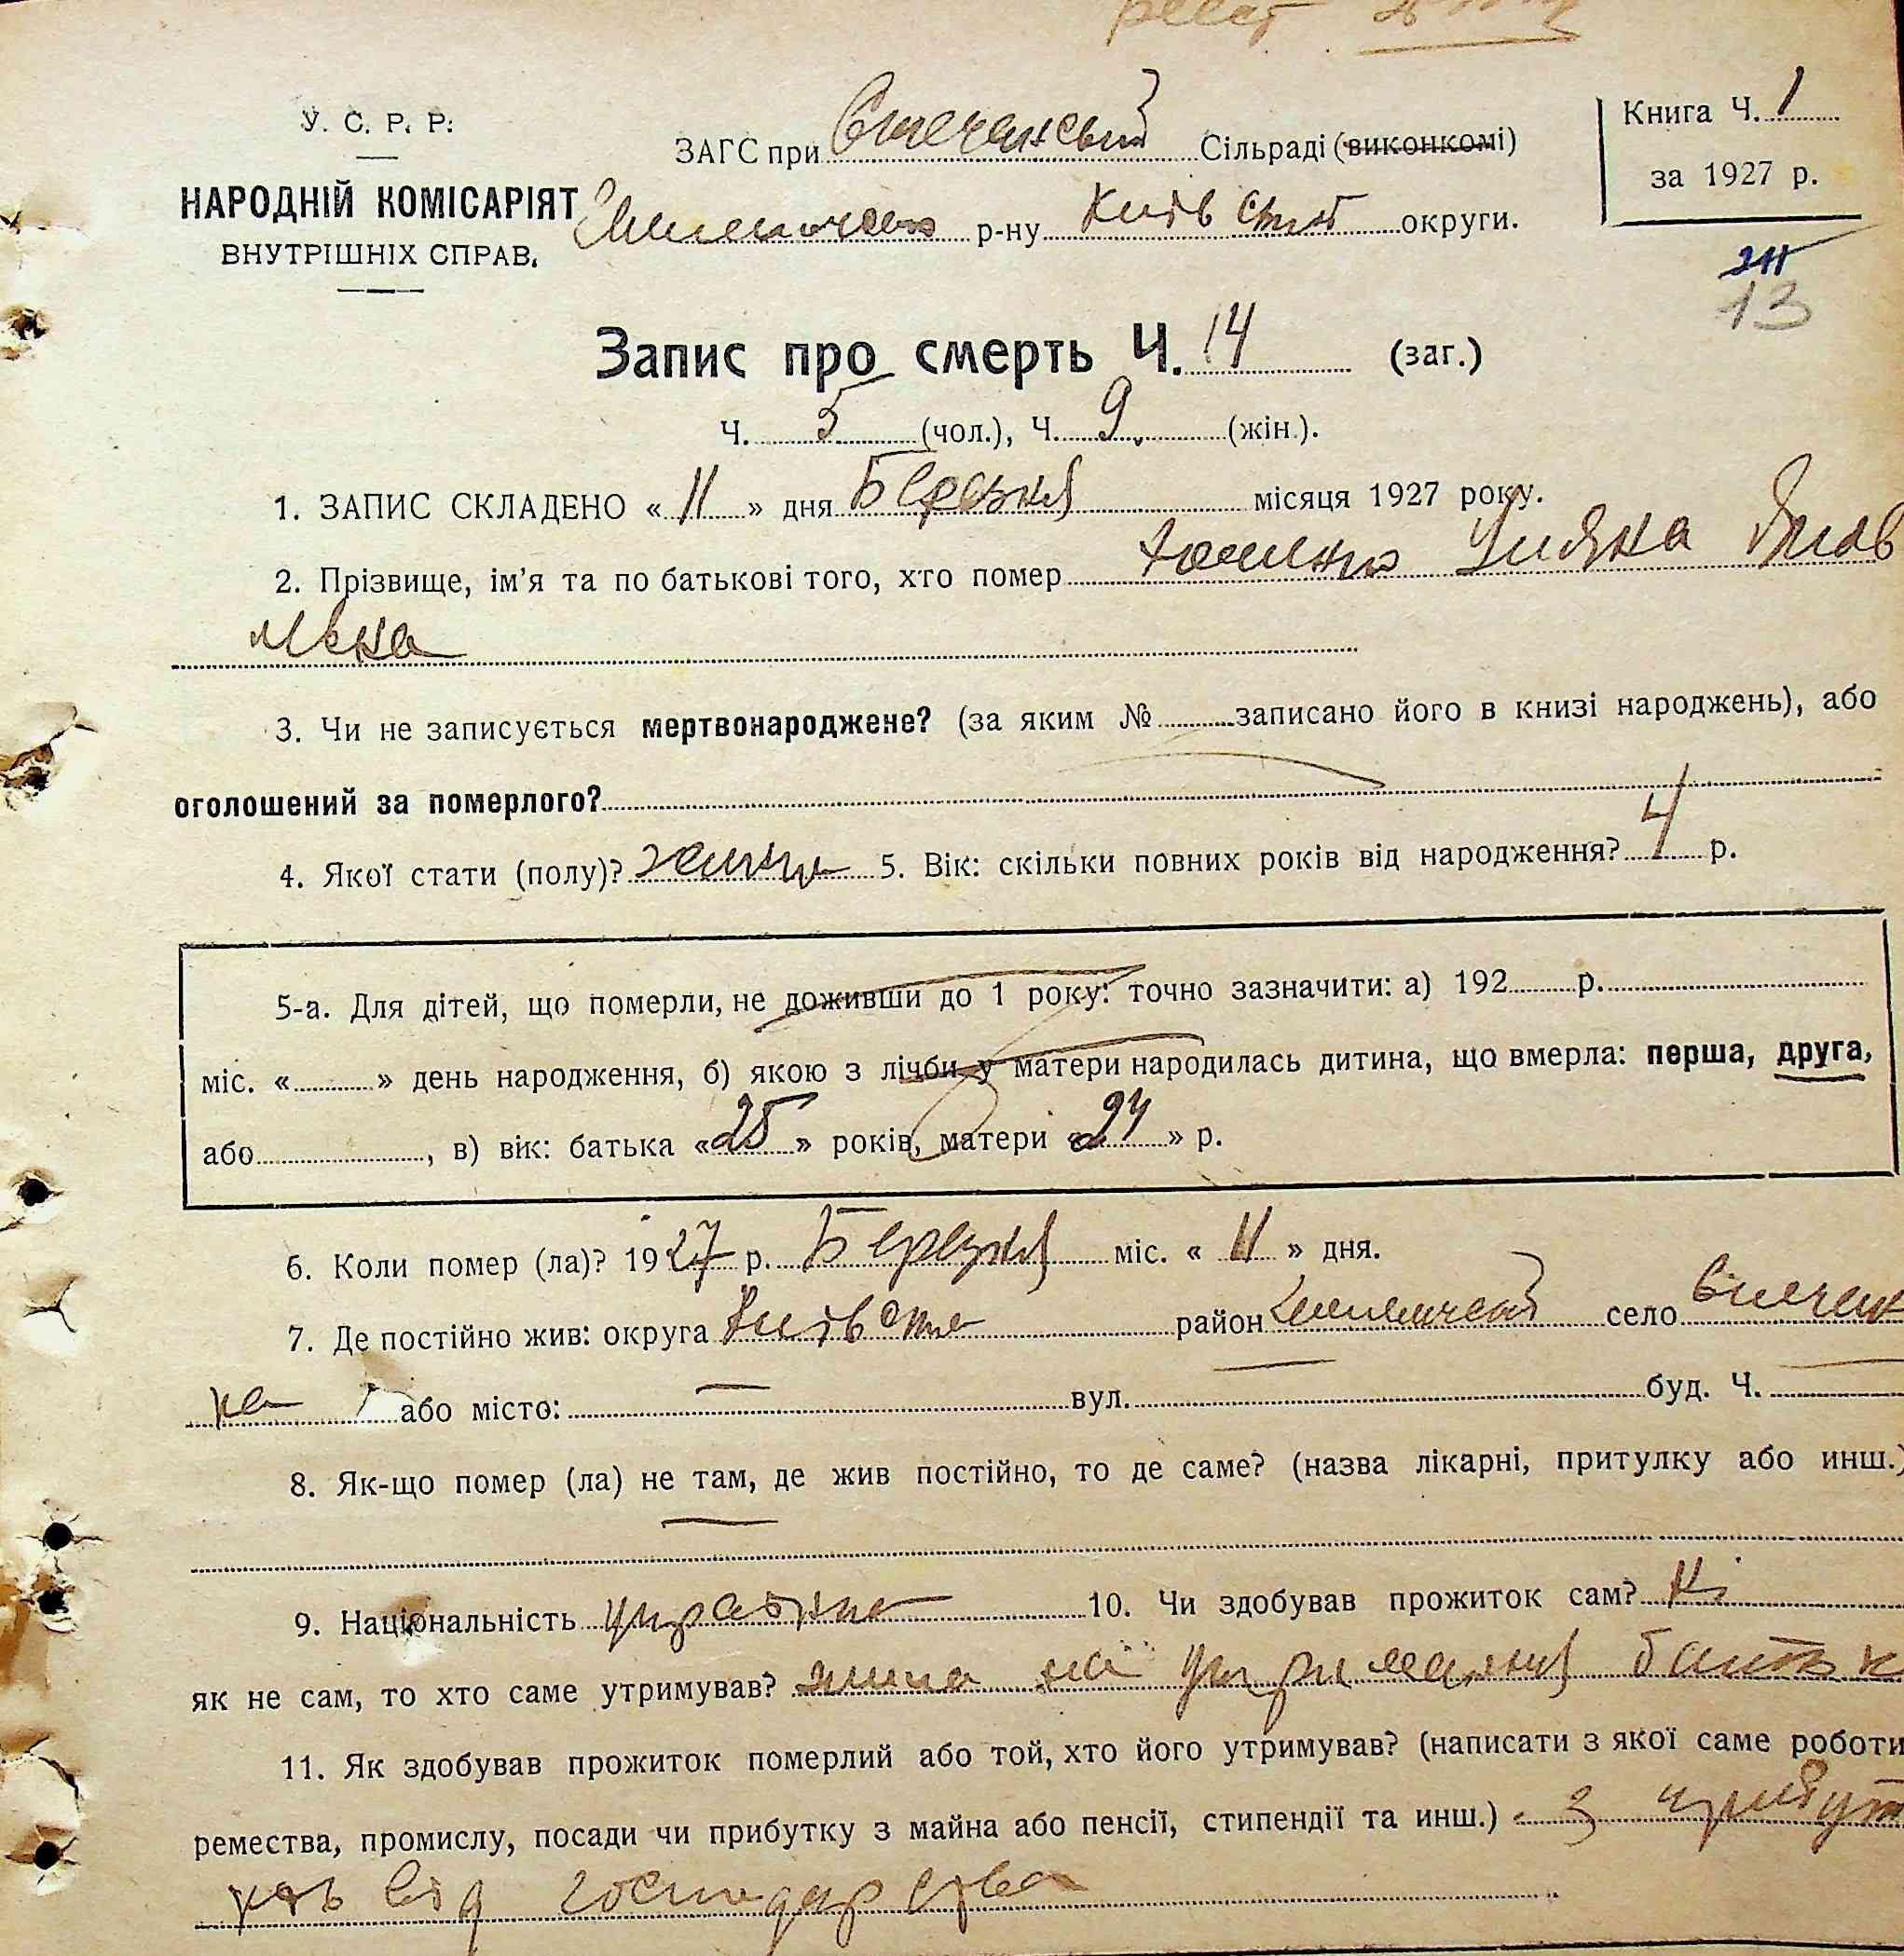 У. С. Р. Р.
НАРОДНІЙ КОМІСАРІЯТ
ВНУТРІШНІХ СПРАВ.
ЗАГС при Сільраді (виконкомі)
р-ну округи.
Книга Ч. 1
за 1927 р.
13
Запис про смерть Ч. 14 (заг.)
Ч. 5 (чол.), Ч. 9 (жін.).
1. ЗАПИС СКЛАДЕНО « 11 » дня Березня місяця 1927 року.
2. Прізвище, ім'я та по батькові того, хто помер
3. Чи не записується мертвонароджене? (за яким № записано його в книзі народжень), або
оголошений за померлого?
4. Якої стати (полу)? 5. Вік: скільки повних років від народження? 4 р.
5-а. Для дітей, що померли, не доживши до 1 року: точно зазначити: а) 192 р.
міс. « » день народження, б) якою з лічби у матери народилась дитина, що вмерла: перша, друга,
або , в) вік: батька « 25 » років, матери « 24 » р.
6. Коли помер (ла)? 1927 р. Березня міс. « 11 » дня.
7. Де постійно жив: округа район село
ка або місто: — вул. — буд. Ч. —
8. Як-що помер (ла) не там, де жив постійно, то де саме? (назва лікарні, притулку або инш.)
—
9. Національність 10. Чи здобував прожиток сам? Ні
як не сам, то хто саме утримував? на
11. Як здобував прожиток померлий або той, хто його утримував? (написати з якої саме роботи
ремества, промислу, посади чи прибутку з майна або пенсії, стипендії та инш.) з прибут
ків від господарства